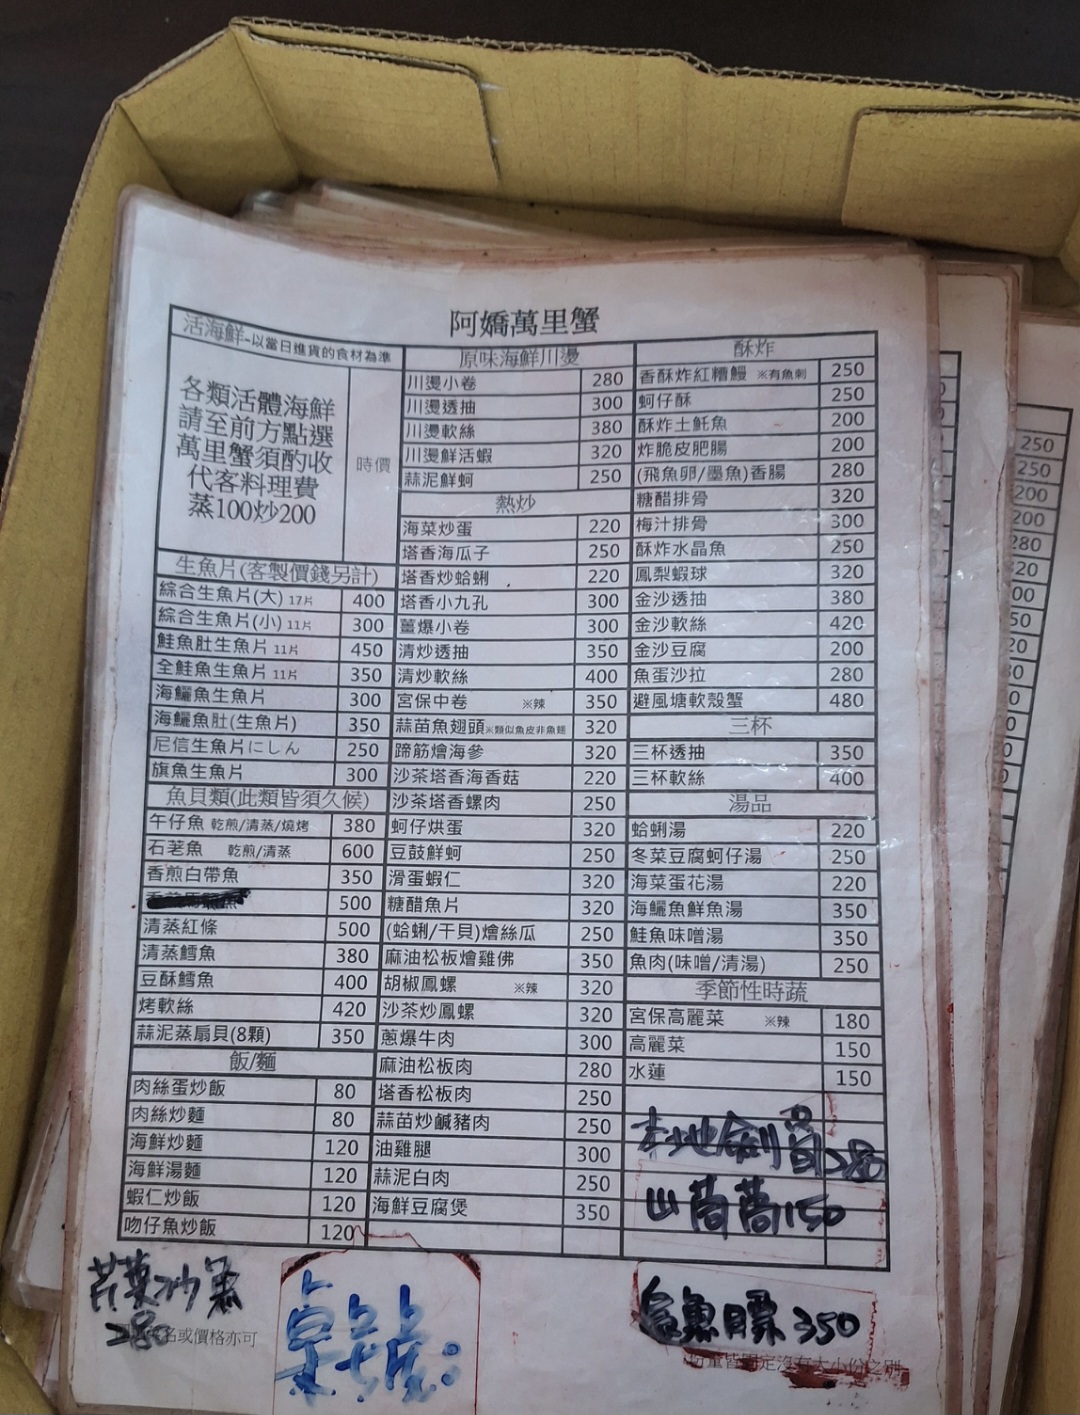 阿嬌萬里蟹
活海鮮-以當日進貨的食材為準
各類活體海鮮
請至前方點選
萬里蟹須酌收
代客料理費
蒸100炒200
時價
生魚片(客製價錢另計)
綜合生魚片(大) 17片 400
綜合生魚片(小) 11片 300
鮭魚肚生魚片 11片 450
全鮭魚生魚片 11片 350
海鱺魚生魚片 300
海鱺魚肚(生魚片) 350
尼信生魚片にしん 250
旗魚生魚片 300
魚貝類(此類皆須久候)
午仔魚 乾煎/清蒸/燒烤 380
石荖魚 乾煎/清蒸 600
香煎白帶魚 350
500
清蒸紅條 500
清蒸鱈魚 380
豆酥鱈魚 400
烤軟絲 420
蒜泥蒸扇貝(8顆) 350
飯/麵
肉絲蛋炒飯 80
肉絲炒麵 80
海鮮炒麵 120
海鮮湯麵 120
蝦仁炒飯 120
吻仔魚炒飯 120
原味海鮮川燙
川燙小卷 280
川燙透抽 300
川燙軟絲 380
川燙鮮活蝦 320
蒜泥鮮蚵 250
熱炒
海菜炒蛋 220
塔香海瓜子 250
塔香炒蛤蜊 220
塔香小九孔 300
薑爆小卷 300
清炒透抽 350
清炒軟絲 400
宮保中卷 ※辣 350
蒜苗魚翅頭※類似魚皮非魚翅 320
蹄筋燴海參 320
沙茶塔香海香菇 220
沙茶塔香螺肉 250
蚵仔烘蛋 320
豆鼓鮮蚵 250
滑蛋蝦仁 320
糖醋魚片 320
(蛤蜊/干貝)燴絲瓜 250
麻油松板燴雞佛 350
胡椒鳳螺 ※辣 320
沙茶炒鳳螺 320
蔥爆牛肉 300
麻油松板肉 280
塔香松板肉 250
蒜苗炒鹹豬肉 250
油雞腿 300
蒜泥白肉 250
海鮮豆腐煲 350
酥炸
香酥炸紅糟鰻 ※有魚刺 250
蚵仔酥 250
酥炸土魠魚 200
炸脆皮肥腸 200
(飛魚卵/墨魚)香腸 280
糖醋排骨 320
梅汁排骨 300
酥炸水晶魚 250
鳳梨蝦球 320
金沙透抽 380
金沙軟絲 420
金沙豆腐 200
魚蛋沙拉 280
避風塘軟殼蟹 480
三杯
三杯透抽 350
三杯軟絲 400
湯品
蛤蜊湯 220
冬菜豆腐蚵仔湯 250
海菜蛋花湯 220
海鱺魚鮮魚湯 350
鮭魚味噌湯 350
魚肉(味噌/清湯) 250
季節性時蔬
宮保高麗菜 ※辣 180
高麗菜 150
水蓮 150
本地劍筍 280
山茼蒿 150
芹菜炒 280
名或價格亦可
桌號:
350
份量皆固定沒有大小份之別